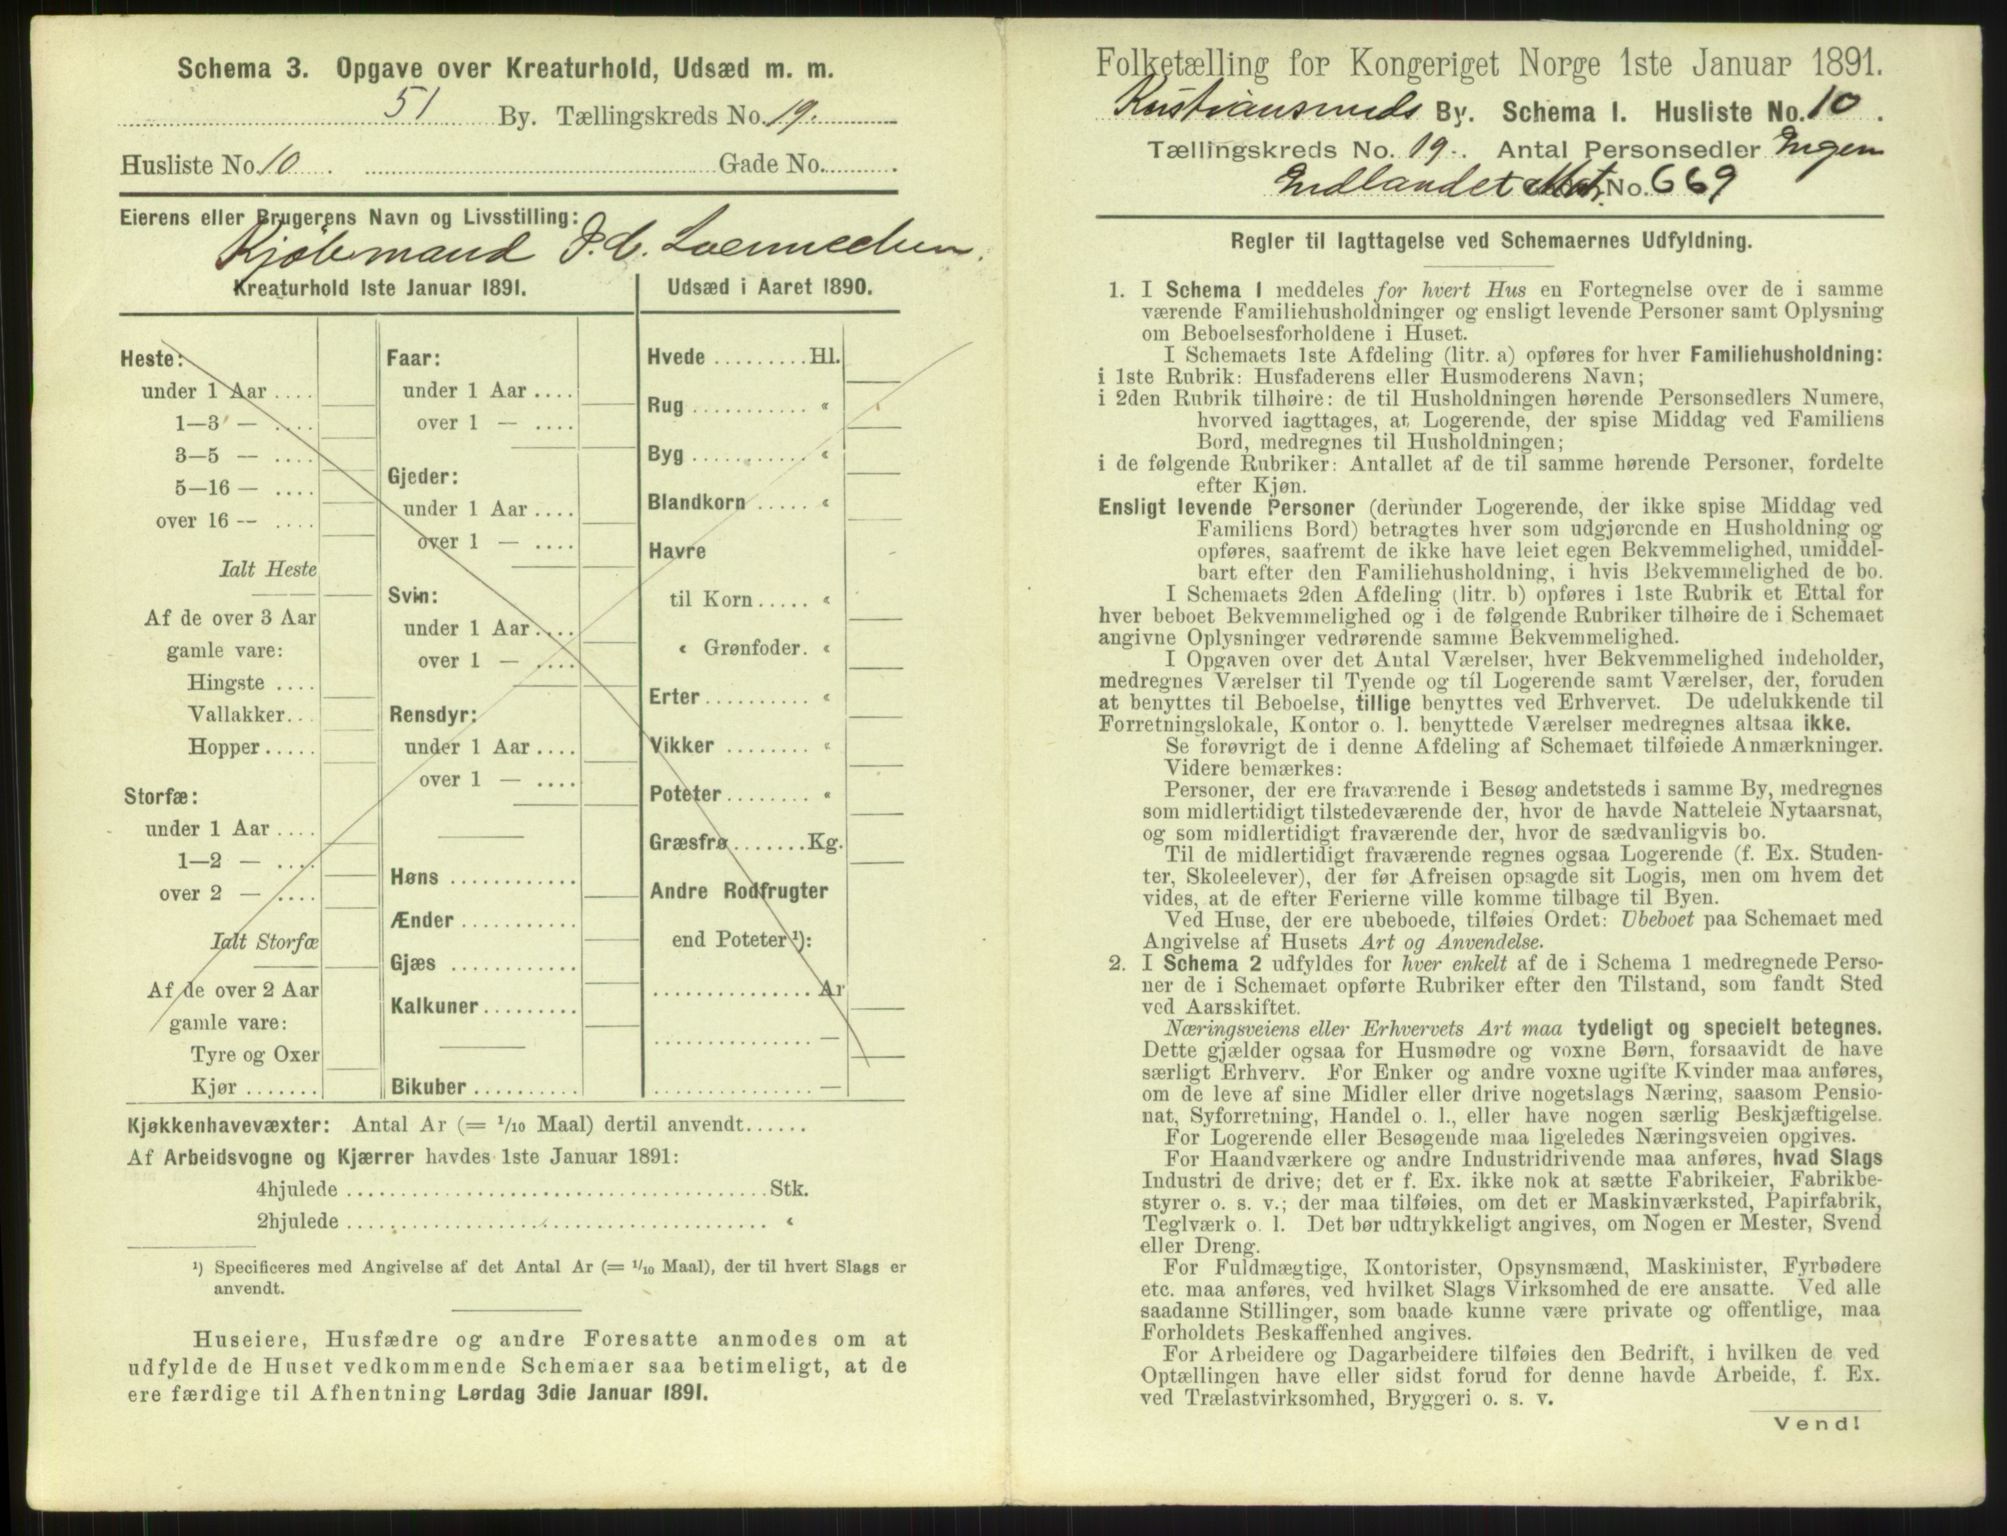 Schema 3. Opgave over Kreaturhold, Udsæd m. m.
51 By. Tællingskreds No. 19.
Husliste No. 10 Gade No.
Eierens eller Brugerens Navn og Livsstilling:
Kjøbmand J. C.
Kreaturhold 1ste Januar 1891.
Heste:
under 1 Aar ....
1—3 — ....
3—5 — ....
5—16 — ....
over 16 — ....
Ialt Heste
Af de over 3 Aar
gamle vare:
Hingste ....
Vallakker...
Hopper .....
Storfæ:
under 1 Aar ....
1—2 — ....
over 2 — ....
Ialt Storfæ
Af de over 2 Aar
gamle vare:
Tyre og Oxer
Kjør .......
Faar:
under 1 Aar ....
over 1 — ....
Gjeder:
under 1 Aar ....
over 1 — ....
Svin:
under 1 Aar ....
over 1 — ....
Rensdyr:
under 1 Aar ....
over 1 — ....
Høns ............
Ænder ...........
Gjæs ............
Kalkuner .........
Bikuber ..........
Udsæd i Aaret 1890.
Hvede .........Hl.
Rug ........... «
Byg ........... «
Blandkorn ..... «
Havre
til Korn ..... «
« Grønfoder. «
Erter .......... «
Vikker ........ «
Poteter ........ «
Græsfrø .......Kg.
Andre Rodfrugter
end Poteter ¹):
............... Ar
............... —
............... —
Kjøkkenhavevæxter: Antal Ar (= 1/10 Maal) dertil anvendt......
Af Arbeidsvogne og Kjærrer havdes 1ste Januar 1891:
4hjulede ........................................ Stk.
2hjulede ........................................ «
¹) Specificeres med Angivelse af det Antal Ar (= 1/10 Maal), der til hvert Slags er
anvendt.
Huseiere, Husfædre og andre Foresatte anmodes om at
udfylde de Huset vedkommende Schemaer saa betimeligt, at de
ere færdige til Afhentning Lørdag 3die Januar 1891.
Folketælling for Kongeriget Norge 1ste Januar 1891.
Kristiansunds By. Schema 1. Husliste No. 10.
Tællingskreds No. 19. Antal Personsedler Ingen
Indlandet Mat. No. 669
Regler til Iagttagelse ved Schemaernes Udfyldning.
1. I Schema 1 meddeles for hvert Hus en Fortegnelse over de i samme
værende Familiehusholdninger og ensligt levende Personer samt Oplysning
om Beboelsesforholdene i Huset.
I Schemaets 1ste Afdeling (litr. a) opføres for hver Familiehusholdning:
i 1ste Rubrik: Husfaderens eller Husmoderens Navn;
i 2den Rubrik tilhøire: de til Husholdningen hørende Personsedlers Numere,
hvorved iagttages, at Logerende, der spise Middag ved Familiens
Bord, medregnes til Husholdningen;
i de følgende Rubriker: Antallet af de til samme hørende Personer, fordelte
efter Kjøn.
Ensligt levende Personer (derunder Logerende, der ikke spise Middag ved
Familiens Bord) betragtes hver som udgjørende en Husholdning og
opføres, saafremt de ikke have leiet egen Bekvemmelighed, umiddel-
bart efter den Familiehusholdning, i hvis Bekvemmelighed de bo.
I Schemaets 2den Afdeling (litr. b) opføres i 1ste Rubrik et Ettal for
hver beboet Bekvemmelighed og i de følgende Rubriker tilhøire de i Schemaet
angivne Oplysninger vedrørende samme Bekvemmelighed.
I Opgaven over det Antal Værelser, hver Bekvemmelighed indeholder,
medregnes Værelser til Tyende og til Logerende samt Værelser, der, foruden
at benyttes til Beboelse, tillige benyttes ved Erhvervet. De udelukkende til
Forretningslokale, Kontor o. l. benyttede Værelser medregnes altsaa ikke.
Se forøvrigt de i denne Afdeling af Schemaet tilføiede Anmærkninger.
Videre bemærkes:
Personer, der ere fraværende i Besøg andetsteds i samme By, medregnes
som midlertidigt tilstedeværende der, hvor de havde Natteleie Nytaarsnat,
og som midlertidigt fraværende der, hvor de sædvanligvis bo.
Til de midlertidigt fraværende regnes ogsaa Logerende (f. Ex. Studen-
ter, Skoleelever), der før Afreisen opsagde sit Logis, men om hvem det
vides, at de efter Ferierne ville komme tilbage til Byen.
Ved Huse, der ere ubeboede, tilføies Ordet: Ubeboet paa Schemaet med
Angivelse af Husets Art og Anvendelse.
2. I Schema 2 udfyldes for hver enkelt af de i Schema 1 medregnede Perso-
ner de i Schemaet opførte Rubriker efter den Tilstand, som fandt Sted
ved Aarsskiftet.
Næringsveiens eller Erhvervets Art maa tydeligt og specielt betegnes.
Dette gjælder ogsaa for Husmødre og voxne Børn, forsaavidt de have
særligt Erhverv. For Enker og andre voxne ugifte Kvinder maa anføres,
om de leve af sine Midler eller drive nogetslags Næring, saasom Pensio-
nat, Syforretning, Handel o. l., eller have nogen særlig Beskjæftigelse.
For Logerende eller Besøgende maa ligeledes Næringsveien opgives.
For Haandværkere og andre Industridrivende maa anføres, hvad Slags
Industri de drive; det er f. Ex. ikke nok at sætte Fabrikeier, Fabrikbe-
styrer o. s. v.; der maa tilføies, om det er Maskinværksted, Papirfabrik,
Teglværk o. l. Det bør udtrykkeligt angives, om Nogen er Mester, Svend
eller Dreng.
For Fuldmægtige, Kontorister, Opsynsmænd, Maskinister, Fyrbødere
etc. maa anføres, ved hvilket Slags Virksomhed de ere ansatte. Ved alle
saadanne Stillinger, som baade kunne være private og offentlige, maa
Forholdets Beskaffenhed angives.
For Arbeidere og Dagarbeidere tilføies den Bedrift, i hvilken de ved
Optællingen have eller sidst forud for denne havde Arbeide, f. Ex.
ved Trælastvirksomhed, Bryggeri o. s. v.
Vend!